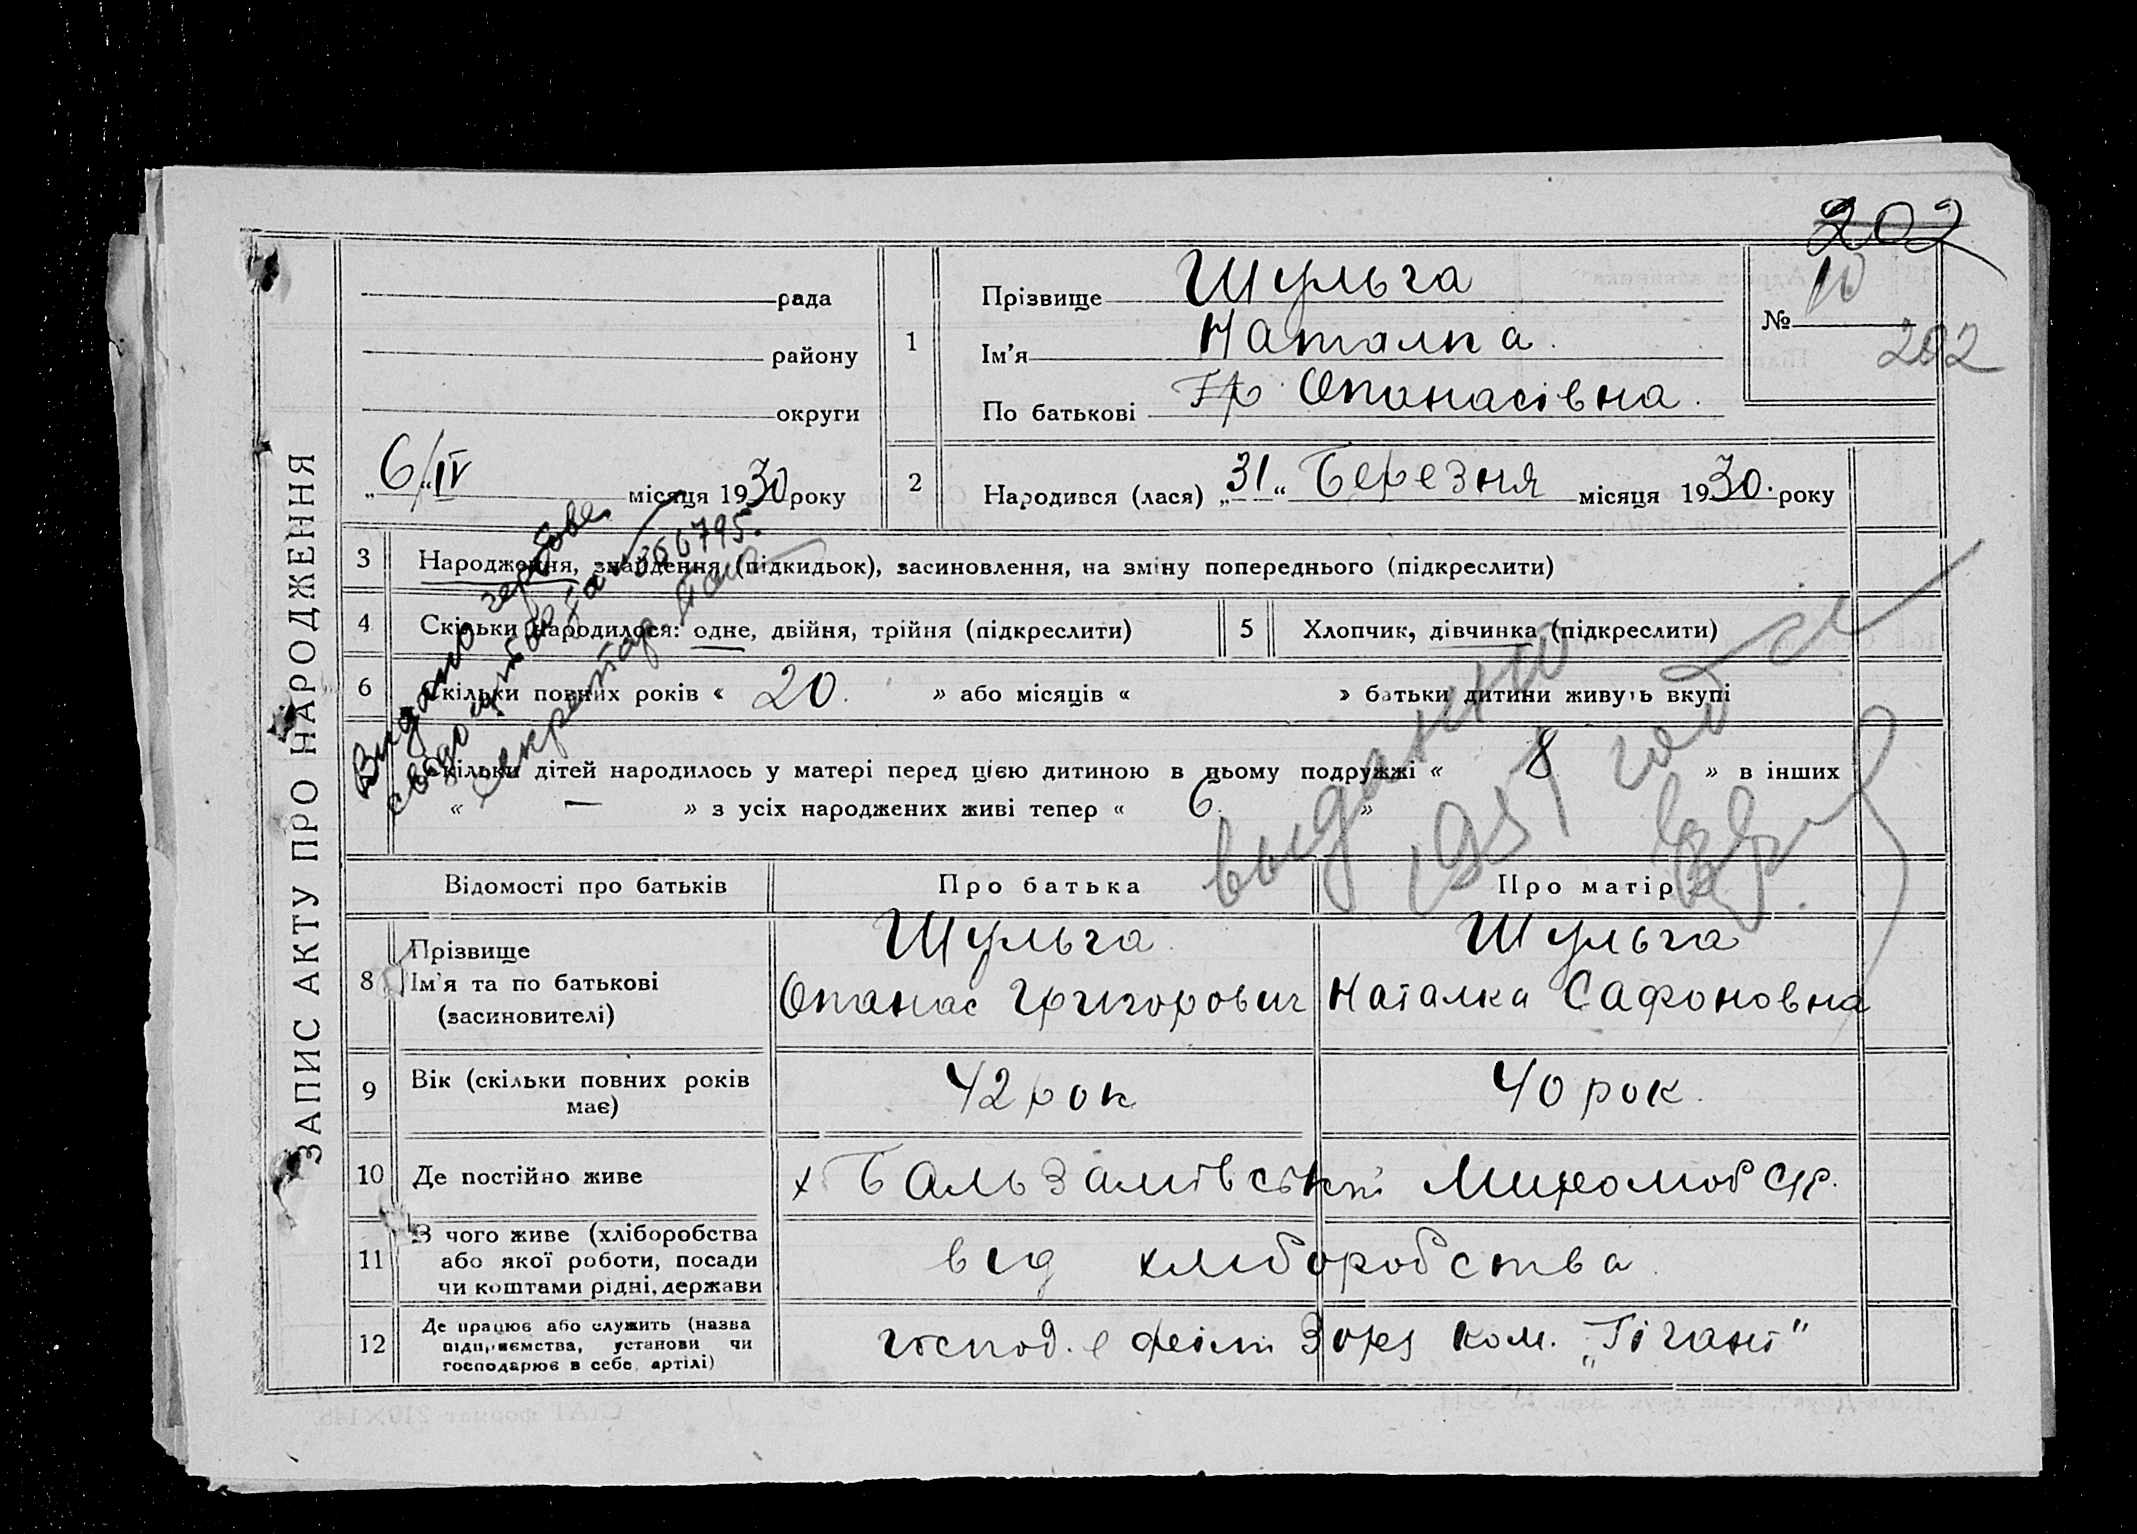 202
ЗАПИС АКТУ ПРО НАРОДЖЕННЯ
рада
району
округи
„6/IV“ місяця 1930 року
1
Прізвище Шульга
Ім'я Наталка
По батькові Гр. Опанасівна.
№ 10
202
2
Народився (лася) „31“ Березня місяця 1930. року
3 Народження, знайдення (підкидьок), засиновлення, на зміну попереднього (підкреслити)
4 Скільки народилося: одне, двійня, трійня (підкреслити)
5 Хлопчик, дівчинка (підкреслити)
6 Скільки повних років « 20. » або місяців « » батьки дитини живуть вкупі
Скільки дітей народилось у матері перед цією дитиною в цьому подружжі « 8 » в інших
« — » з усіх народжених живі тепер « 6. »
Видано гербове
свідоцтво за № 366795.
Секретар
выданно
1951 года
Відомості про батьків
Про батька
Про матір
8 Прізвище
Ім'я та по батькові
(засиновителі)
Шульга
Опанас Григорович
Шульга
Наталка Сафоновна
9 Вік (скільки повних років
має)
42 рок
40 рок.
10 Де постійно живе
х Бальзамівський
11 З чого живе (хліборобства
або якої роботи, посади
чи коштами рідні, держави
від хліборобства
12 Де працює або служить (назва
підприємства, установи чи
господарює в себе, артілі)
господ. в ком. „Гігант"